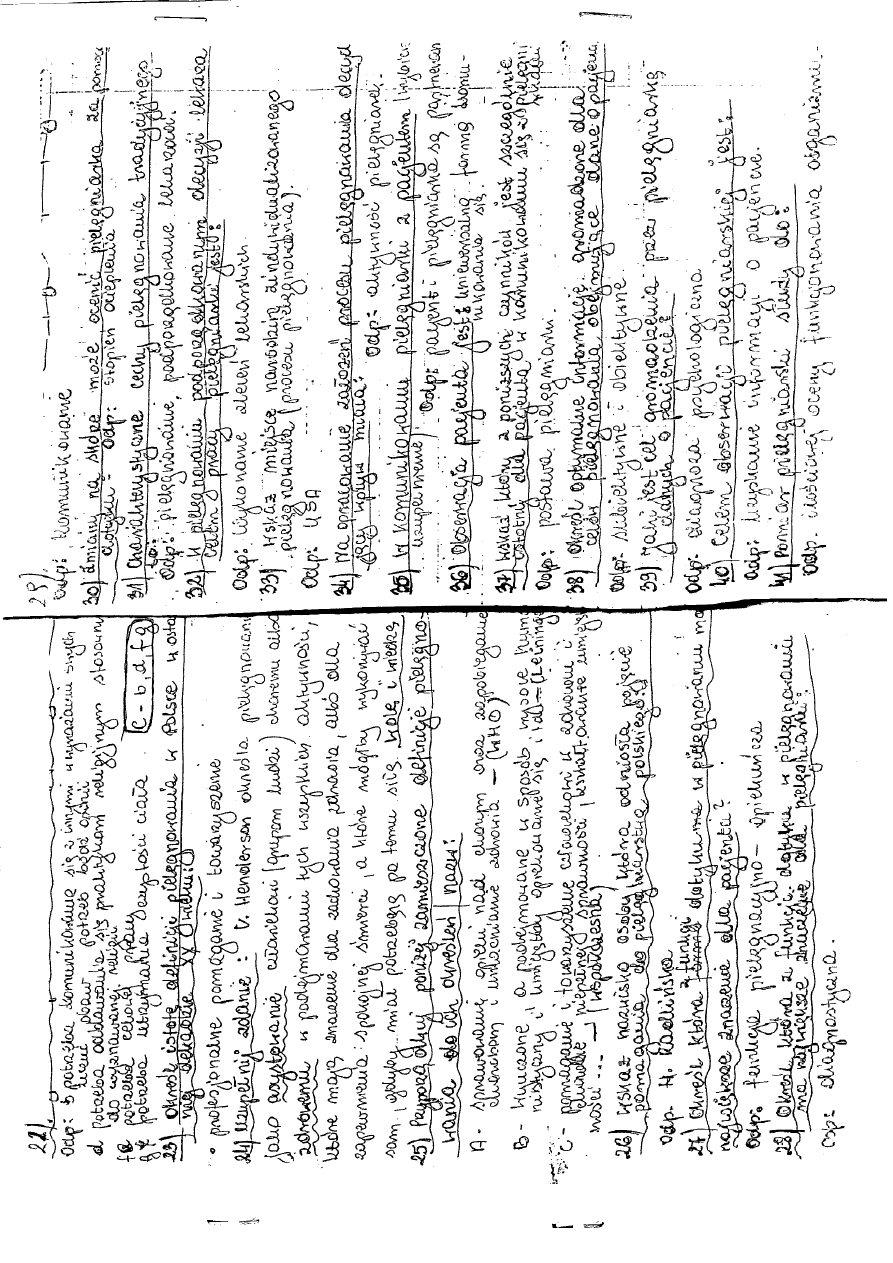 22)
Odp: b potrzeba komunikowania się z innymi wyrażaniu swych
obaw potrzeb bądź opinii
d potrzeba oddawania się praktykom religijnym stosownie
do wyznawanej religii
f potrzeba celowej pracy
g potrzeba utrzymania czystości ciała C - b, d, f, g
23) Określ istotę definicji pielęgnowania w Polsce w osta
niej dekadzie XX wieku:
• profesjonalne pomaganie i towarzyszenie
24) Uzupełnij zdanie: V. Henderson określa pielęgnowani
jako asystowanie człowiekowi (grupom ludzi) choremu albo
zdrowemu w podejmowaniu tych wszystkich aktywności,
które mają znaczenie dla zachowania zdrowia, albo dla
zapewnienia spokojnej śmierci, a które mógłby wykonywać
sam, gdyby miał potrzebną po temu siłę, wolę i wiedzę
25) Przyporządkuj poniżej zamieszczone definicje pielęgno-
wania do ich określeń / nazw:
A - sprawowanie opieki nad chorym oraz zapobieganie
chorobom i umacnianie zdrowia - (WHO)
B - wyuczone, a podejmowane w sposób
umiejętny opiekowanie się
C - pomaganie i towarzyszenie człowiekowi w zdrowiu i
chorobie, pełnej sprawności, kształtowanie umieję
mości ... - (współczesna)
26) Wskaż nazwisko osoby, która odniosła pojęcie
pomagania do pielęgniarstwa polskiego:
Odp. H.
27) Określ która z funkcji dotykania w pielęgnowaniu ma
największe znaczenie dla pacjenta?
Odp: funkcja pielęgnacyjno - opiekuńcza
28) Określ która z funkcji dotyku w pielęgnowaniu
ma największe znaczenie dla pielęgniarki?
Odp: diagnostyczna.
29)
Odp: Komunikowanie
30) Zmiany na skórze może ocenić pielęgniarka za pomocą
dotyku - Odp: stopień ocieplenia
31) Charakterystyczne cechy pielęgnowania tradycyjnego-
to:
Odp: pielęgnowanie, podporządkowane lekarzowi.
32) W pielęgnowaniu podporządkowanym decyzji lekarza
celem pracy pielęgniarki jest:
Odp: Wykonanie zleceń lekarskich
33) Wskaż miejsce narodzin zindywidualizowanego
pielęgnowania (procesu pielęgnowania).
Odp: USA
34) Na opracowanie założeń procesu pielęgnowania decyd
jący wpływ miała: Odp: aktywność pielęgniarek.
35) W komunikowaniu pielęgniarki z pacjentem
uzupełnienie) Odp: pacjent i pielęgniarka są partneram
36) Obserwacja pacjenta jest: uniwersalną formą komu-
nikowania się.
37) Wskaż który z poniższych czynników jest szczególnie
istotny dla pacjenta w komunikowaniu się z pielęgni
Odp: postawa pielęgniarki.
38) Określ optymalne informacje gromadzone dla
celów pielęgnowania obejmujące dane o pacjenc
Odp: subiektywne i obiektywne
39) Jaki jest cel gromadzenia przez pielęgniarkę
danych o pacjencie?
Odp: diagnoza psychologiczna
40) Celem obserwacji pielęgniarskiej jest:
Odp: Uzyskanie informacji o pacjencie.
41) Pomiar pielęgniarski służy do:
Odp. ilościowej oceny funkcjonowania organizmu.